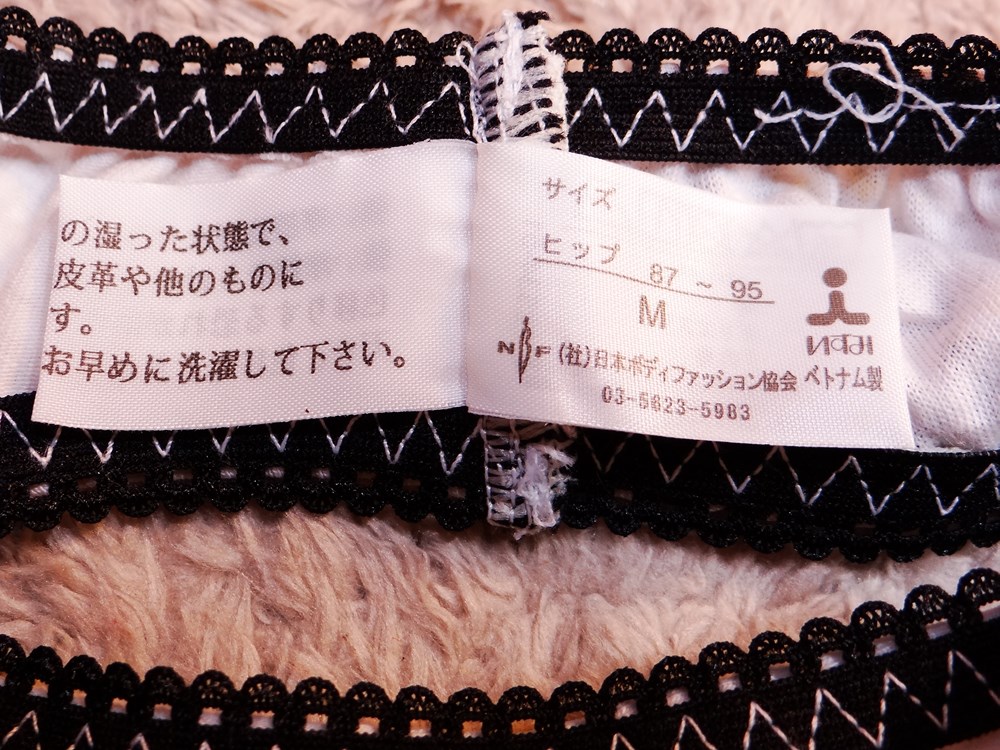 の湿った状態で、
皮革や他のものに
す。
お早めに洗濯して下さい。
サイズ
ヒップ 87 ~ 95
M
NBF (社)日本ボディファッション協会 ベトナム製
03-5623-5983